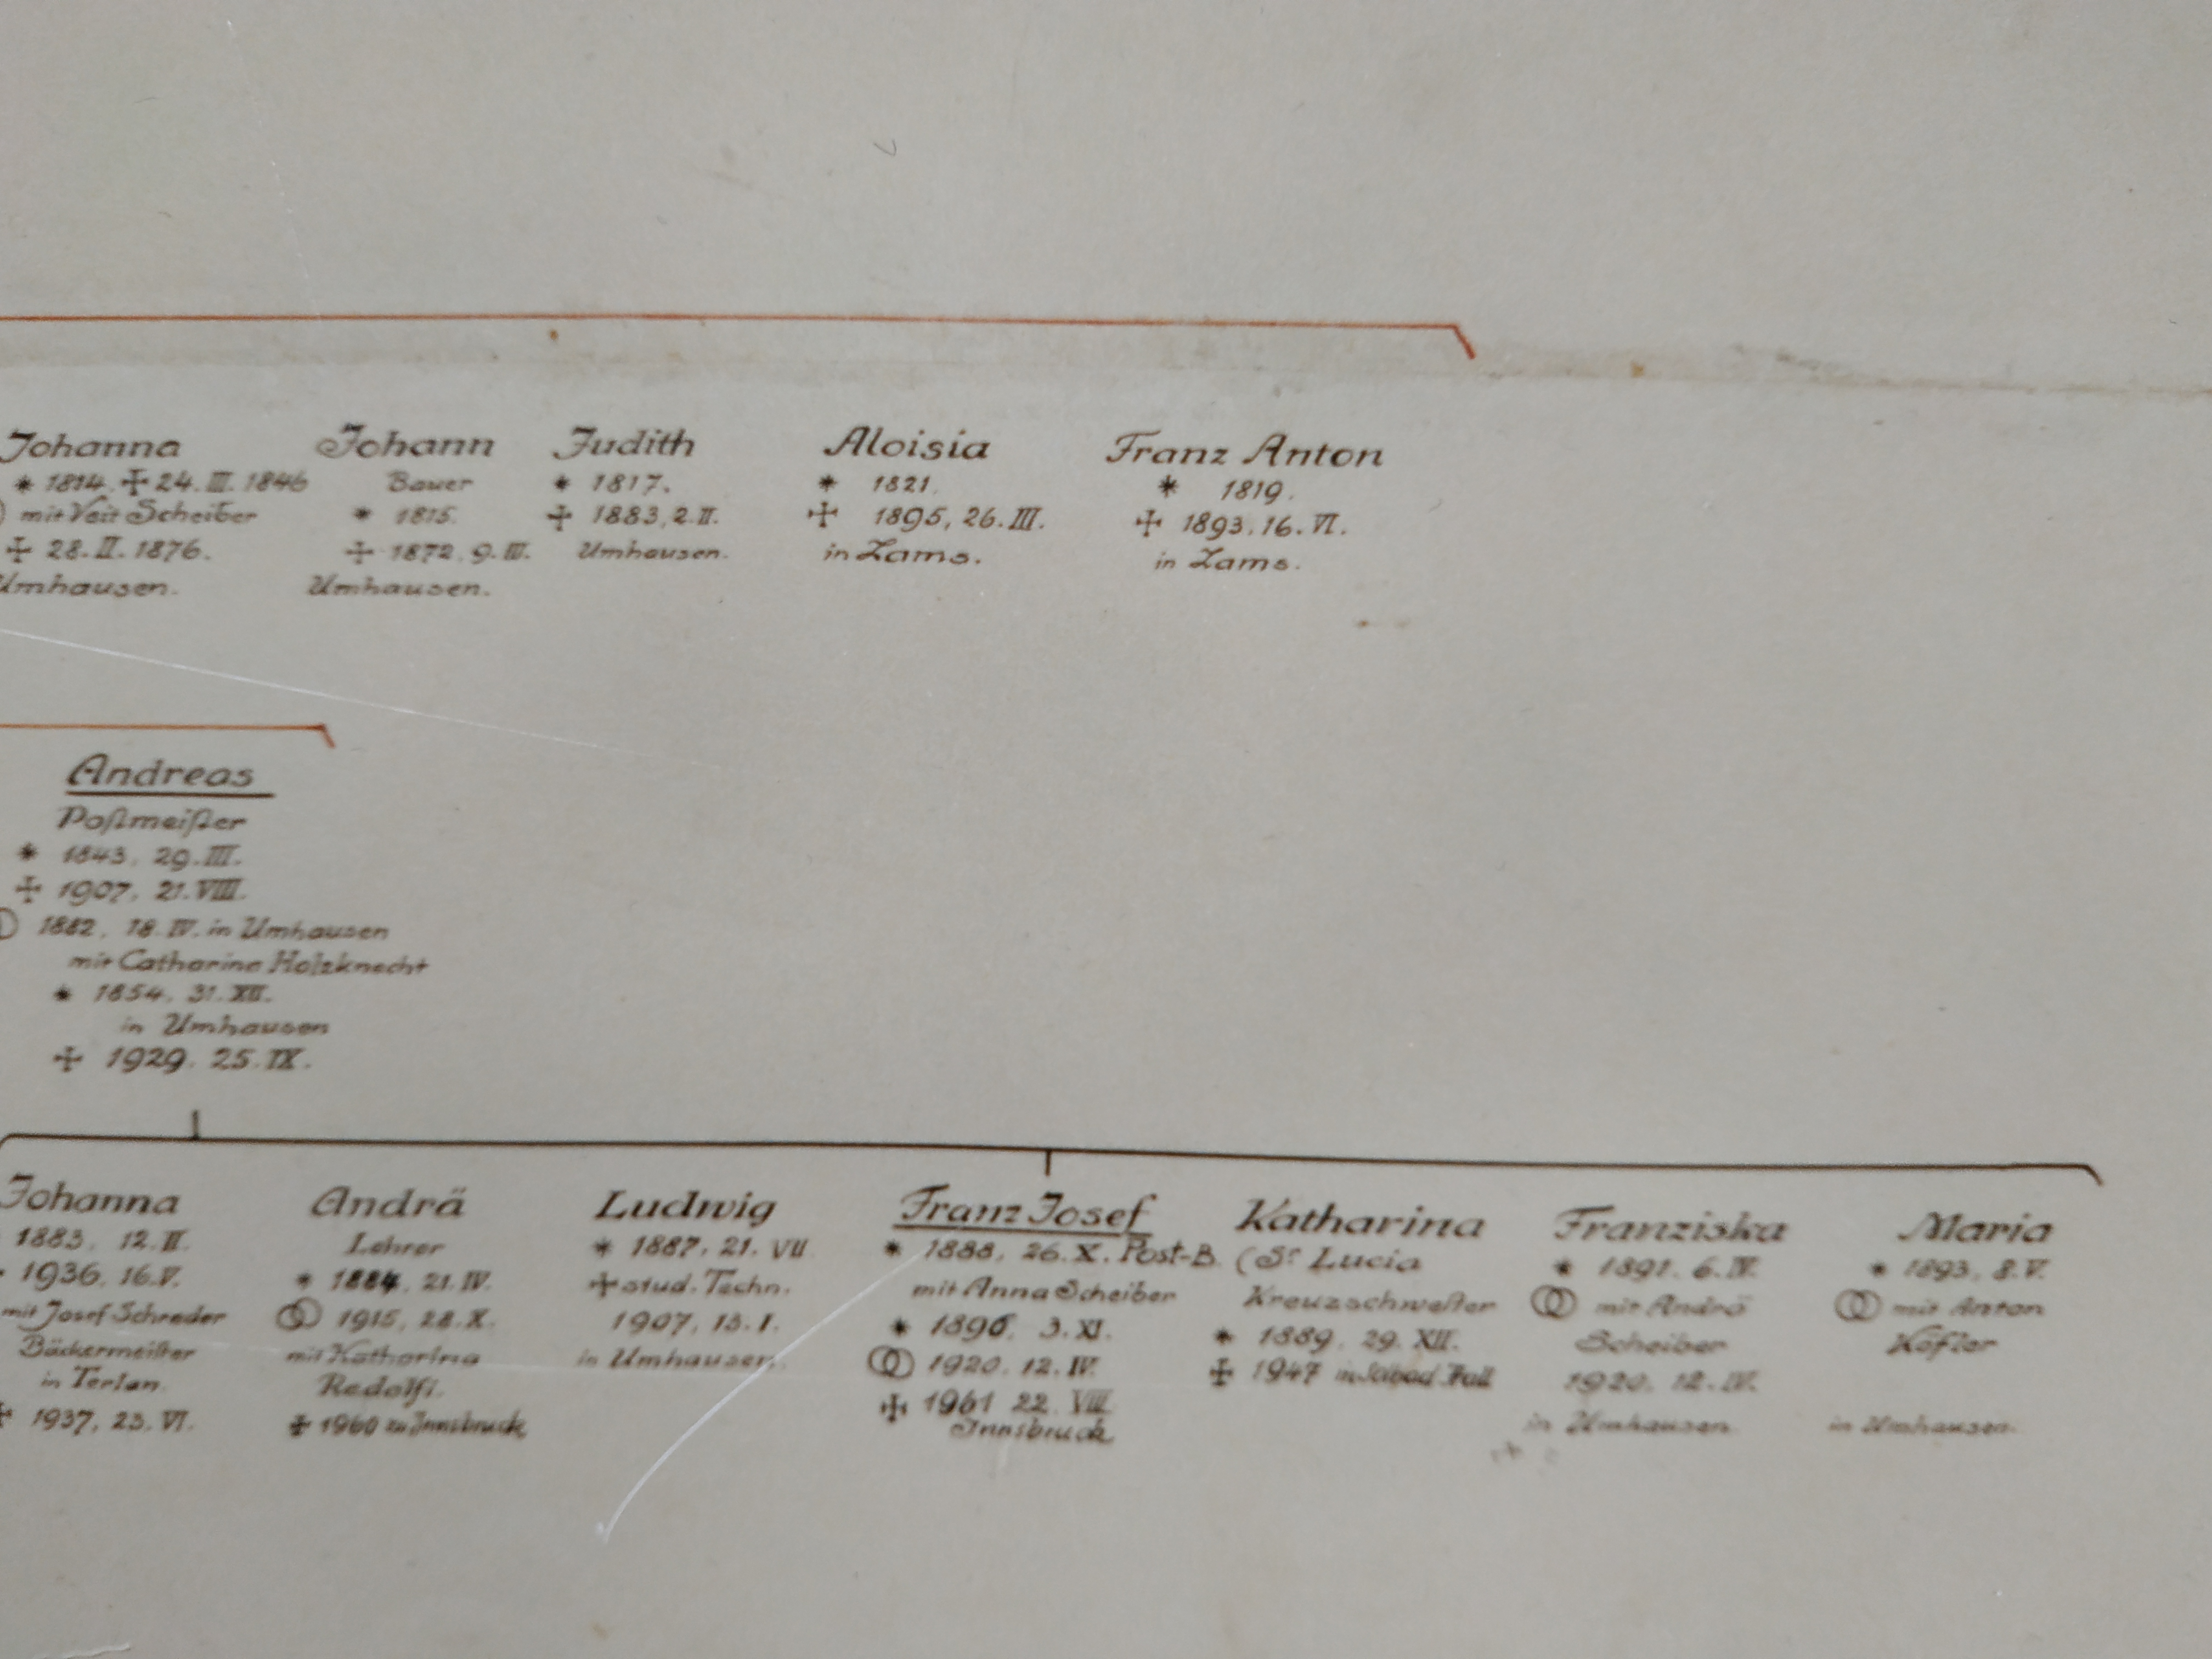 Johanna
* 1814. ✠ 24. III. 1846
mit Veit Scheiber
✠ 28. II. 1876.
Umhausen.
Johann
Bauer
* 1815.
✠ 1872. 9. III.
Umhausen.
Judith
* 1817.
✠ 1883, 2. II.
Umhausen.
Aloisia
* 1821.
✠ 1895, 26. III.
in Zams.
Franz Anton
* 1819.
✠ 1893. 16. VI.
in Zams.
Andreas
Poſtmeiſter
* 1843. 29. III.
✠ 1907. 21. VIII.
1882. 18. IV. in Umhausen
mit Catharina Holzknecht
* 1854. 31. XII.
in Umhausen
✠ 1929. 25. IX.
Johanna
1883. 12. II.
1936. 16. V.
mit Josef Schreder
Bäckermeiſter
in Terlan.
✠ 1937, 23. VI.
Andrä
Lehrer
* 1884, 21. IV.
⚭ 1915, 28. X.
mit Katharina
Redolfi.
✠ 1960 zu Innsbruck
Ludwig
* 1887, 21. VII
✠ stud. Techn.
1907, 13. I.
in Umhausen.
Franz Josef
* 1888, 26. X. Post-B.
mit Anna Scheiber
* 1896. 3. XI.
⚭ 1920. 12. IV.
✠ 1961 22. VIII
Innsbruck
Katharina
(Sr Lucia
Kreuzschweſter
* 1889. 29. XII.
✠ 1947 in Solbad Hall
Franziska
* 1891. 6. IV.
⚭ mit Andrä
Scheiber
1920. 12. IV.
in Umhausen
Maria
* 1893, 8. V.
⚭ mit Anton
Kofler
in Umhausen.